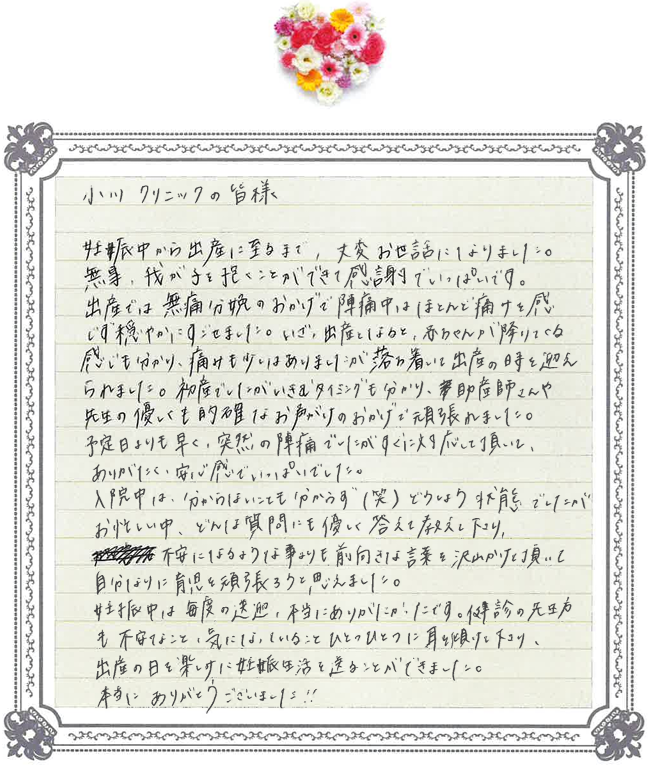 小川クリニックの皆様
妊娠中から出産に至るまで、大変お世話になりました。
無事、我が子を抱くことができて感謝でいっぱいです。
出産では無痛分娩のおかげで陣痛中はほとんど痛みを感
じず穏やかにすごせました。いざ、出産となると、赤ちゃんが降りてくる
感じも分かり、痛みも少しはありましたが落ち着いて出産の時を迎え
られました。初産でしたがいきむタイミングも分かり、助産師さんや
先生の優しくも的確なお声がけのおかげで頑張れました。
予定日よりも早く、突然の陣痛でしたがすぐに対応して頂いて、
ありがたく、安心感でいっぱいでした。
入院中は、分からないことも分からず(笑)どうしよう状態でしたが
お忙しい中、どんな質問にも優しく答えて教えて下さり、
不安になるような事よりも前向きな言葉を沢山かけて頂いて
自分なりに育児を頑張ろうと思えました。
妊娠中は毎度の送迎、本当にありがたかったです。健診の先生方
も不安なこと、気になっていることひとつひとつに耳を傾けて下さり、
出産の日を楽しみに妊娠生活を送ることができました。
本当にありがとうございました!!